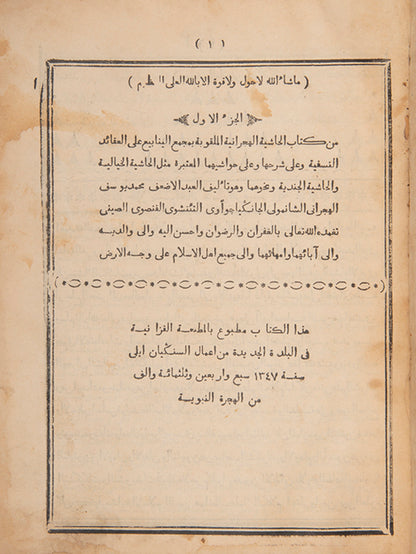 ( ١ )
( ماشاء الله لا حول ولا قوة الا بالله العلى العظيم )
الجزء الاول
من كتاب الحاشية الهجرانية الملقوبة بمجمع الينابيع على العقائد
النسفية وعلى شرحها وعلى حواشيهما المعتبرة مثل الحاشية الخيالية
والحاشية الجندية ونحوهما وهو تاليف العبد الاضعف محمد يوسف
الهجرانى الشانمولى الجانكياجواوى الننشوى الغنصوى الصينى
تغمده الله تعالى بالغفران والرضوان واحسن اليه والى والديه
والى آبائهما وامهاتهما والى جميع اهل الاسلام على وجه الارض
هذا الكتاب مطبوع بالمطبعة الغزانية
فى البلدة الجديدة من اعمال السنكيان ايلى
سنة ١٣٤٧ سبع واربعين وثلثمائة والف
من الهجرة النبوية